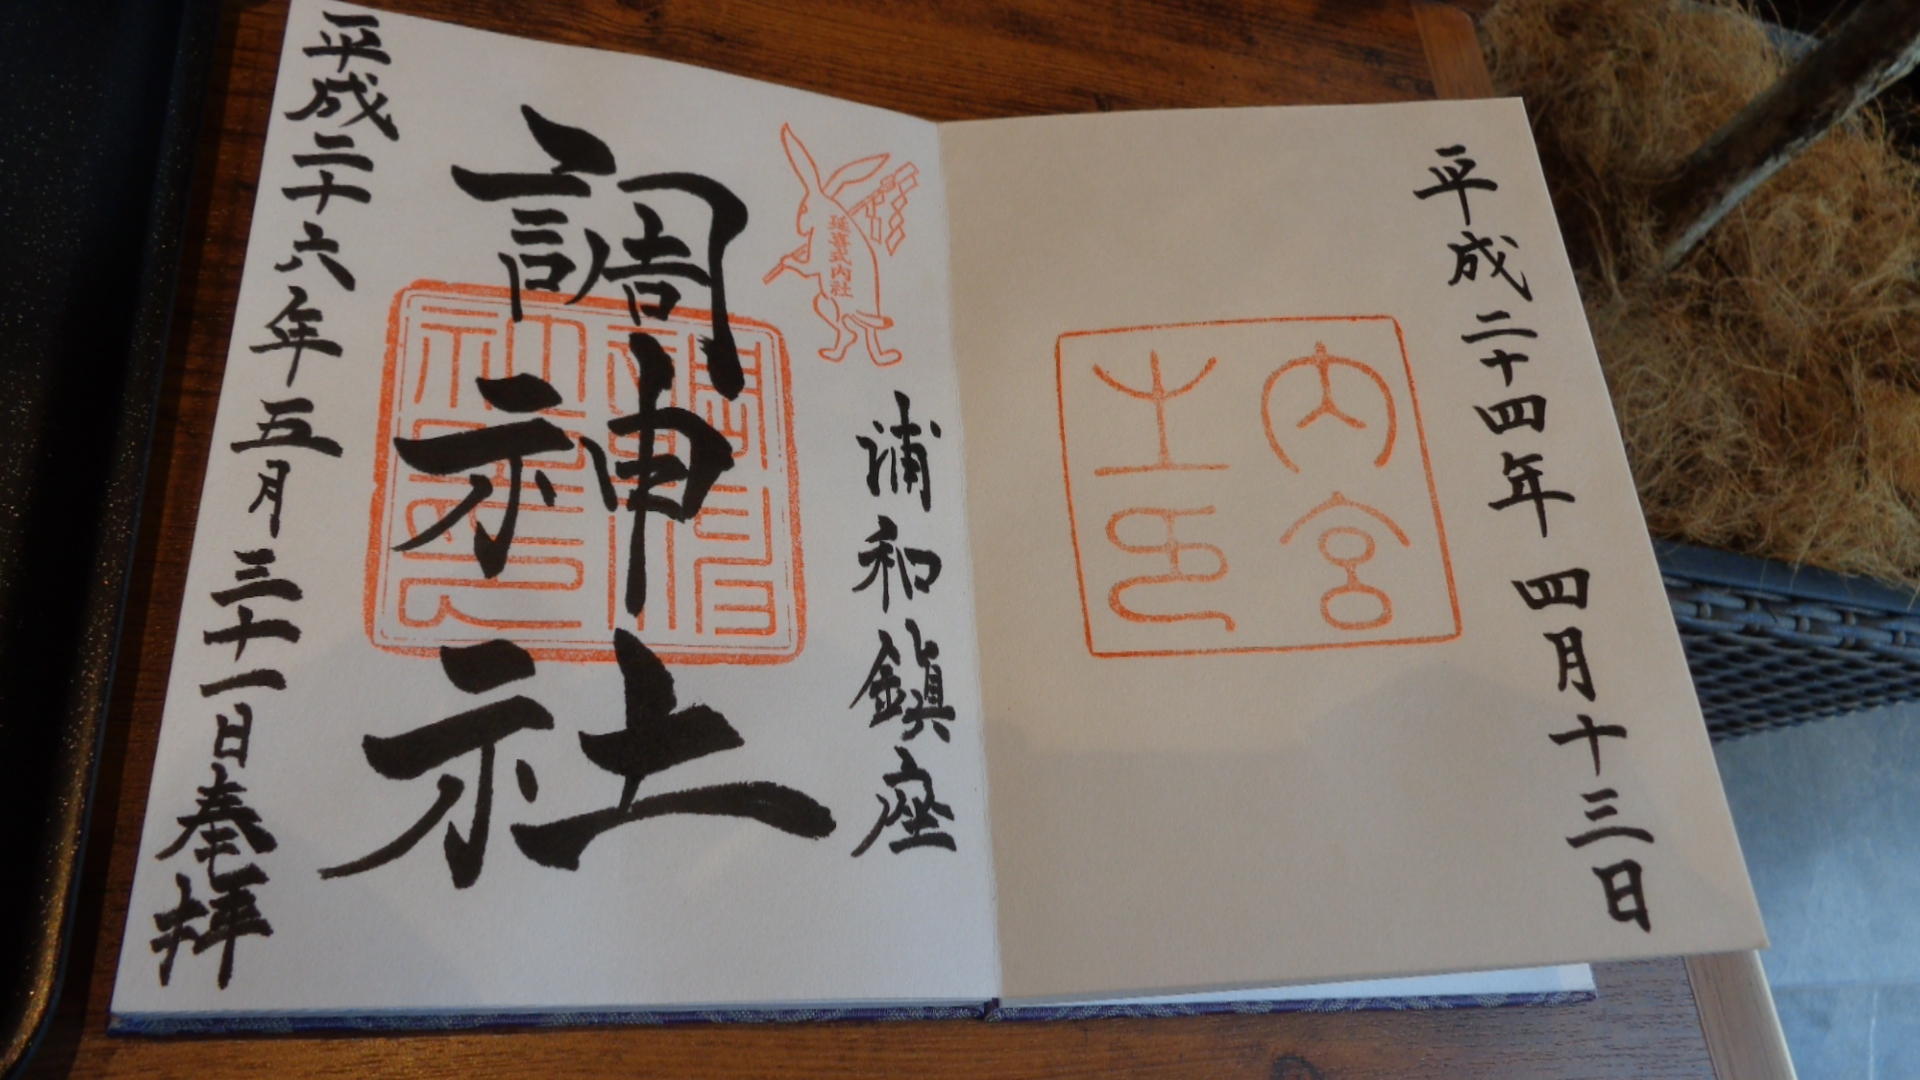 平成二十四年四月十三日
内宮之印
浦和鎮座
延喜式内社
調神社
平成二十六年五月三十一日奉拝